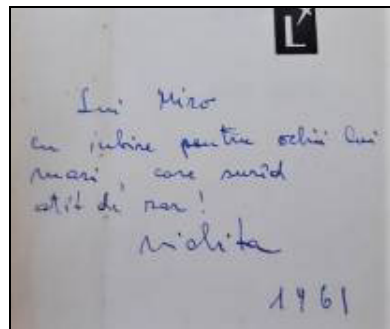 L
Lui Miro
cu iubire pentru ochii lui
mari, care surîd
atît de rar!
Nichita
1961